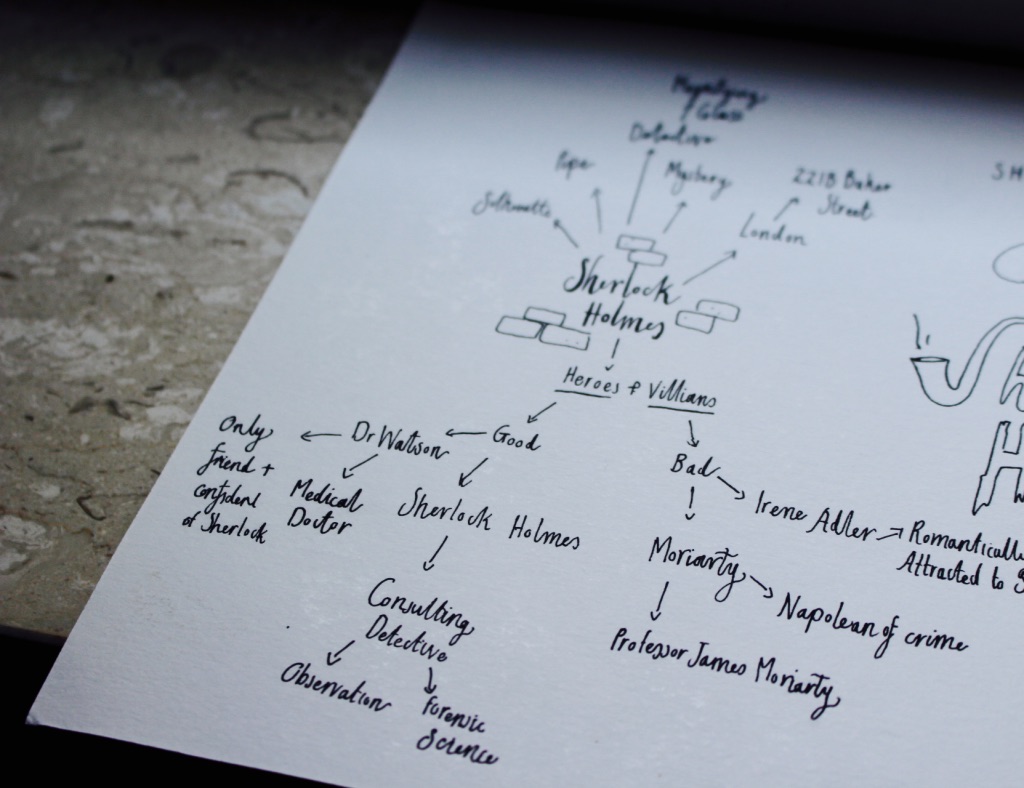 Magnifying
Glass
Detective
Pipe
Mystery
221B Baker
Street
SH
Silhouette
London
Sherlock
Holmes
Heroes + Villians
Good
Dr Watson
Only
friend +
confident
of Sherlock
Medical
Doctor
Sherlock Holmes
Consulting
Detective
Observation
Forensic
Science
Bad
Irene Adler
Romantically
Attracted to S
Moriarty
Napolean of crime
Professor James Moriarty